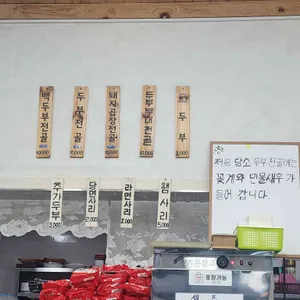 백두부전골
10,000
두부전골
10,000
돼지곱창전골
10,000
두부
10,000
두부
10,000
추가두부
5,000
당면사리
2,000
라면사리
2,000
햄사리
5,000
저희 당소 두부전골에는
꽃게와 민물새우가
들어 갑니다.
포장가능